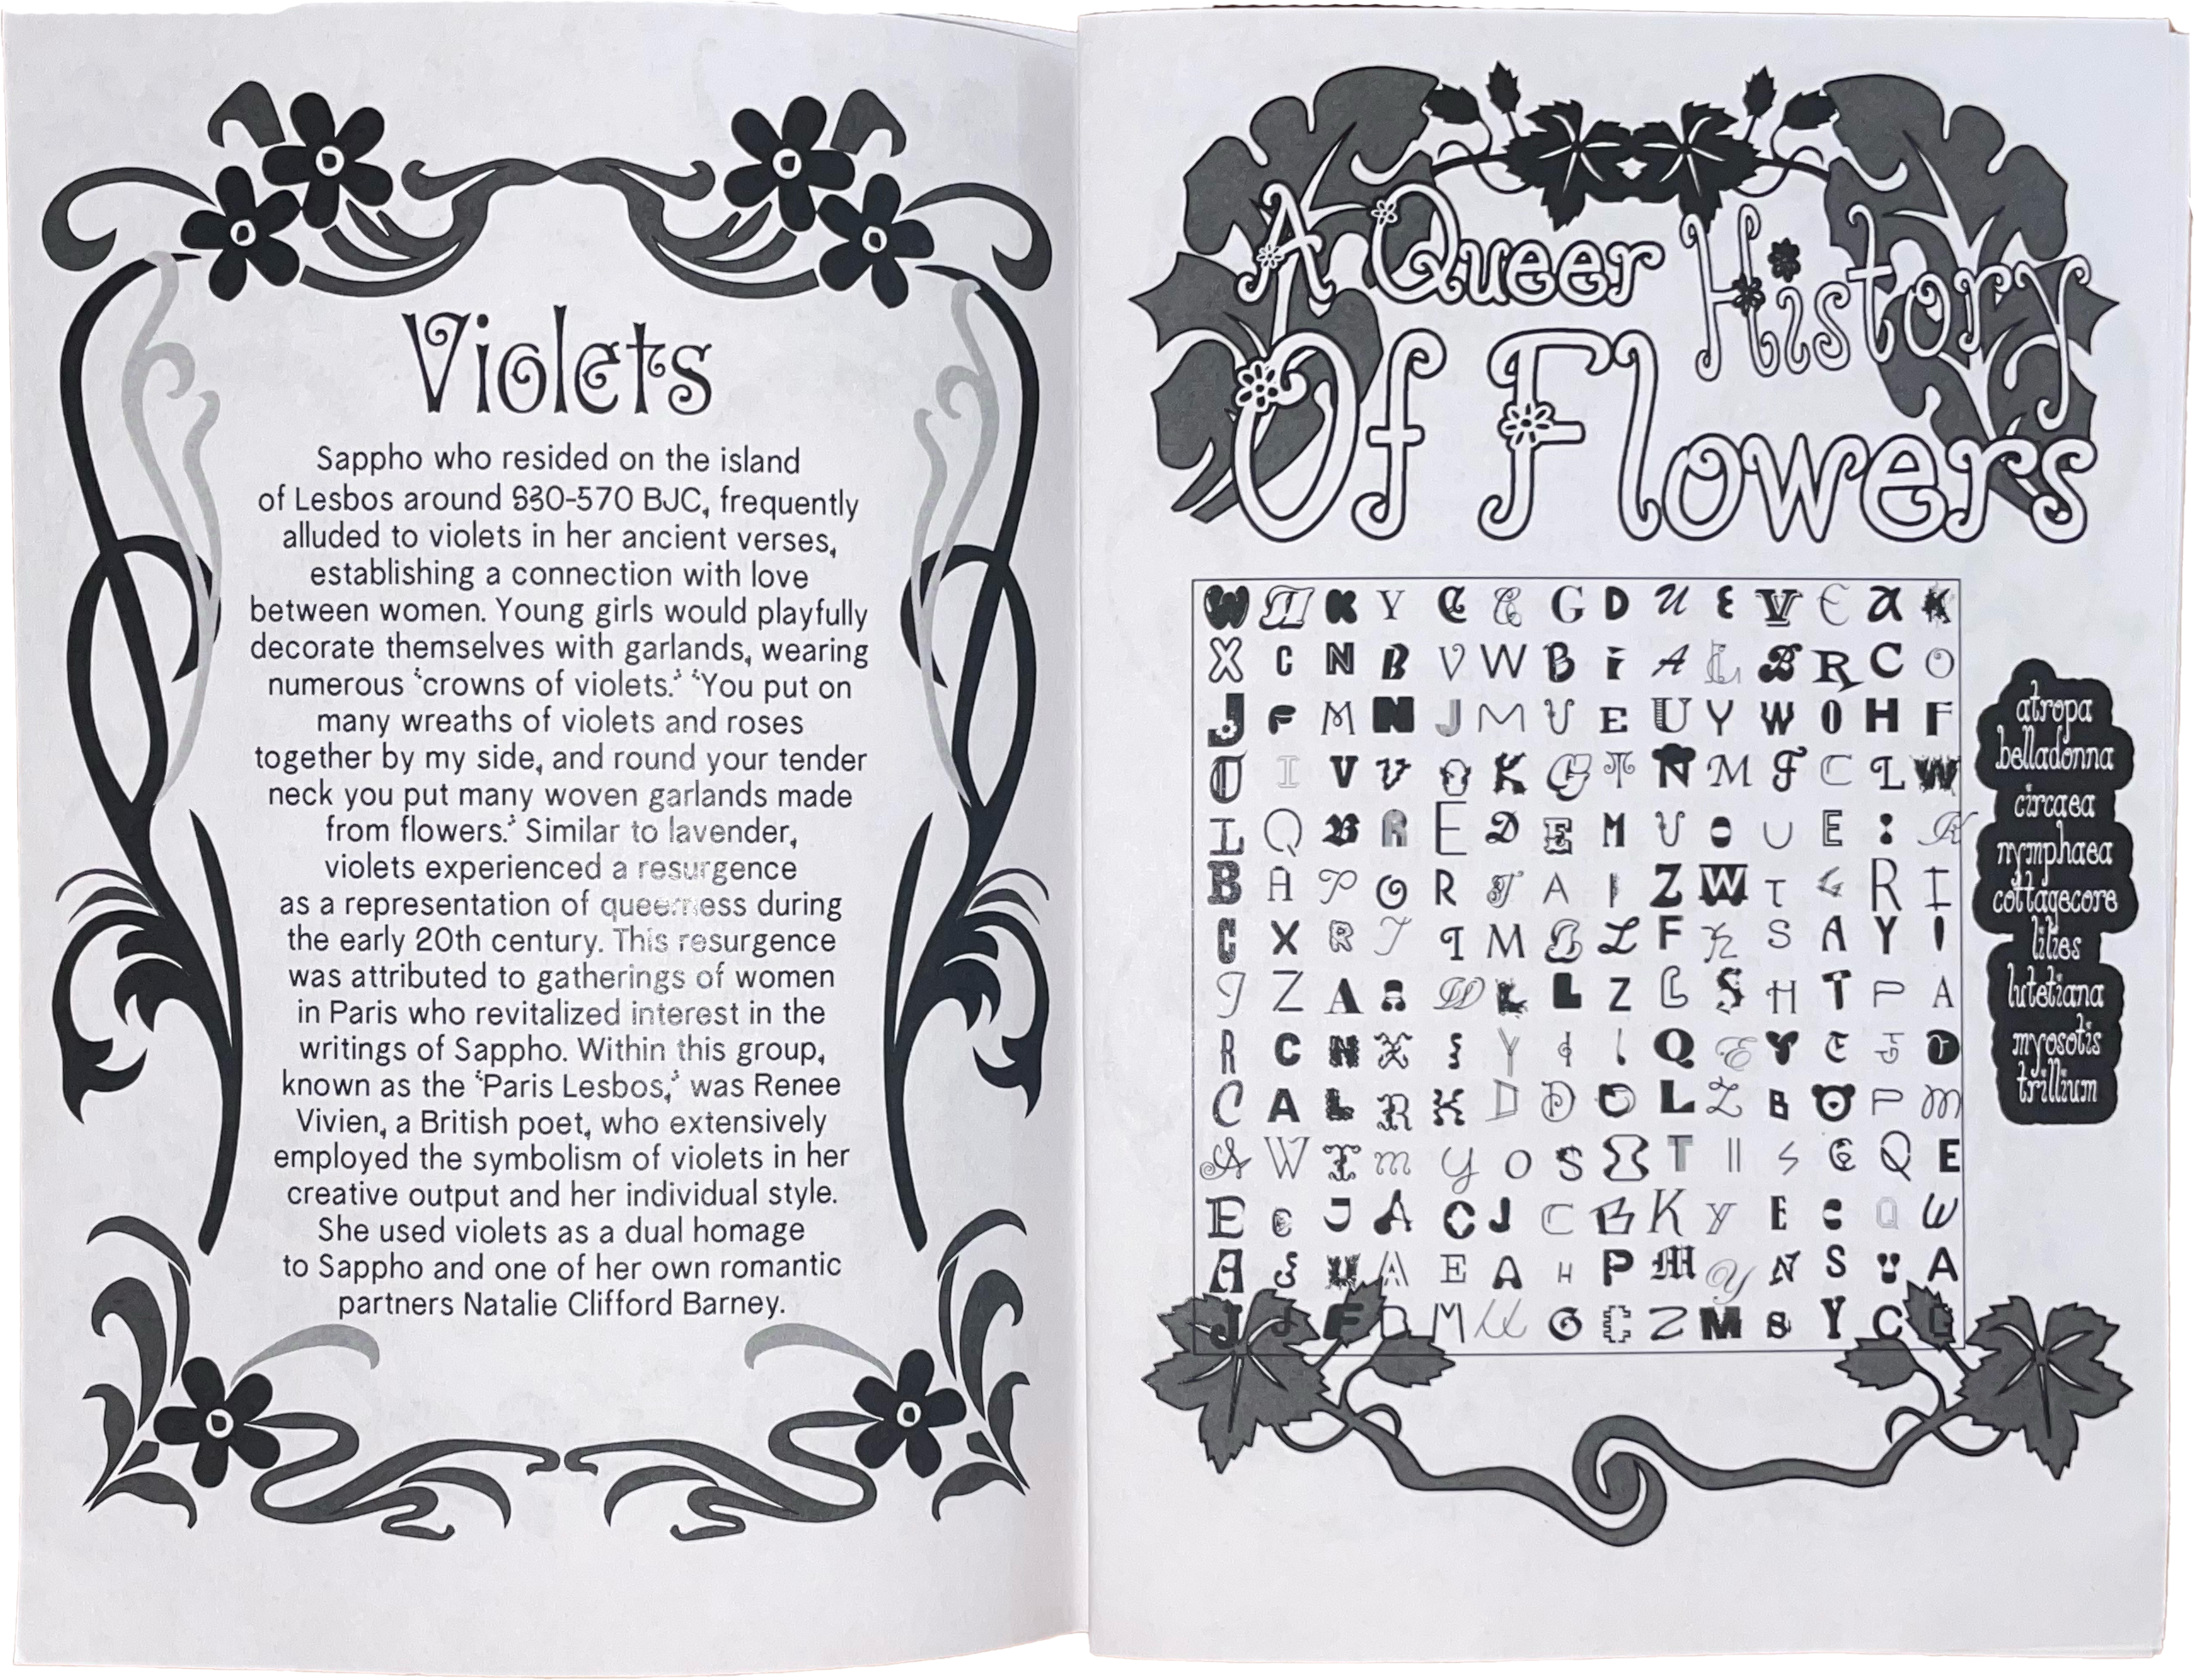 Violets
Sappho who resided on the island
of Lesbos around 630-570 BJC, frequently
alluded to violets in her ancient verses,
establishing a connection with love
between women. Young girls would playfully
decorate themselves with garlands, wearing
numerous 'crowns of violets.' 'You put on
many wreaths of violets and roses
together by my side, and round your tender
neck you put many woven garlands made
from flowers.' Similar to lavender,
violets experienced a resurgence
as a representation of queerness during
the early 20th century. This resurgence
was attributed to gatherings of women
in Paris who revitalized interest in the
writings of Sappho. Within this group,
known as the 'Paris Lesbos,' was Renee
Vivien, a British poet, who extensively
employed the symbolism of violets in her
creative output and her individual style.
She used violets as a dual homage
to Sappho and one of her own romantic
partners Natalie Clifford Barney.
A Queer History
Of Flowers
W A K Y C C G D U E V E A K
X C N B V W B I A L B R C O
J F M N J M U E U Y W O H F
O I V V O K G T N M F C L W
I Q B R E D E M U O U E I K
B A P O R T A I Z W T G R I
C X R J I M B L F K S A Y I
J Z A A W L L Z L S H T P A
R C N X I Y I I Q E Y C J D
C A L R K D D O L Z B O P M
A W T M Y O S O T I S C Q E
E C J A C J C B K Y E O Q W
A S U A E A H P M Y N S U A
J J F D M U O C Z M S Y C L
atropa
belladonna
circaea
nymphaea
cottagecore
lilies
lutetiana
myosotis
trillium